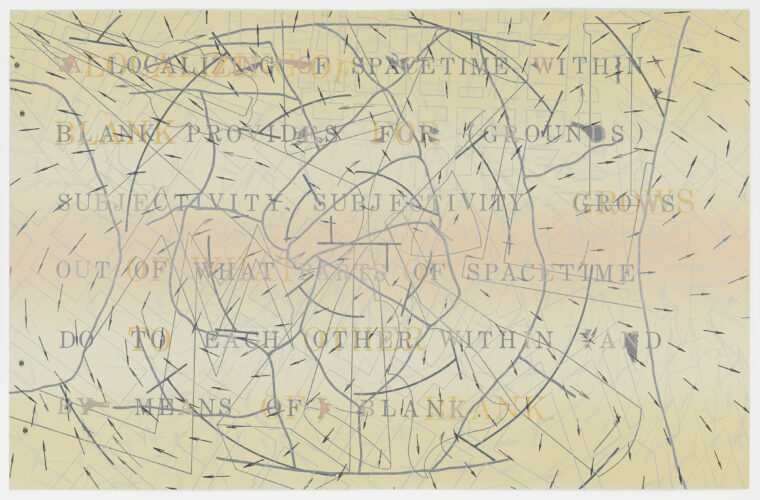 A LOCALIZING OF SPACETIME WITHIN
BLANK PROVIDES FOR (GROUNDS)
SUBJECTIVITY. SUBJECTIVITY GROWS
OUT OF WHAT PARTS OF SPACETIME
DO TO EACH OTHER WITHIN AND
BY MEANS OF BLANK